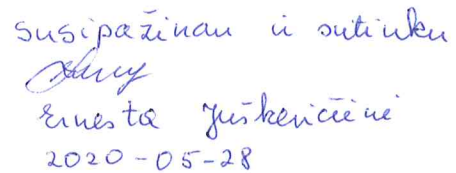 susipažinau ir sutinku
Ernesta Juškevičienė
2020-05-28